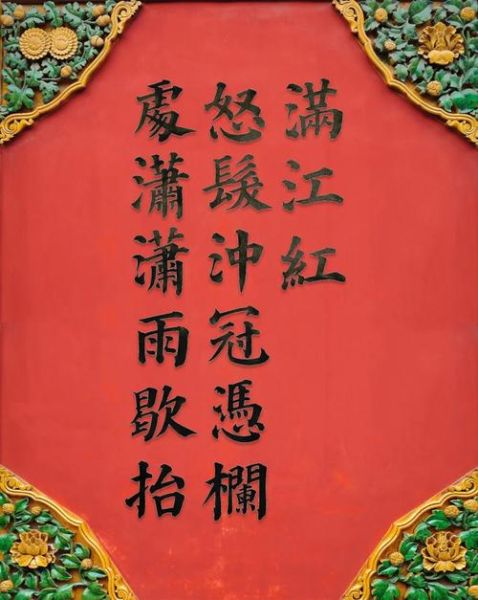 滿江紅
怒髮沖冠憑欄
處瀟瀟雨歇抬